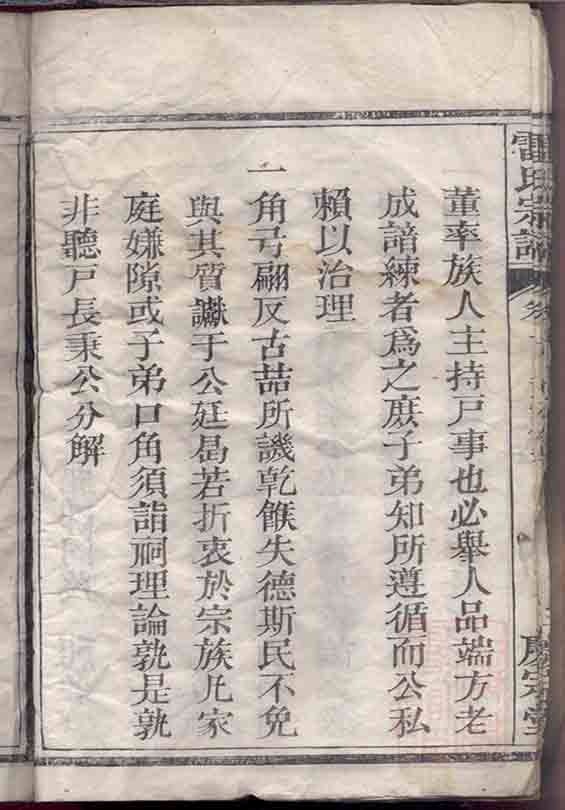 雷氏宗譜
董率族人主持戸事也必舉人品端方老
成諳練者爲之庶子弟知所遵循而公私
賴以治理
一角弓翩反古喆所譏乾餱失德斯民不免
與其質讞于公廷曷若折衷於宗族凡家
庭嫌隙或子弟口角須詣祠理論孰是孰
非聽戸長秉公分解